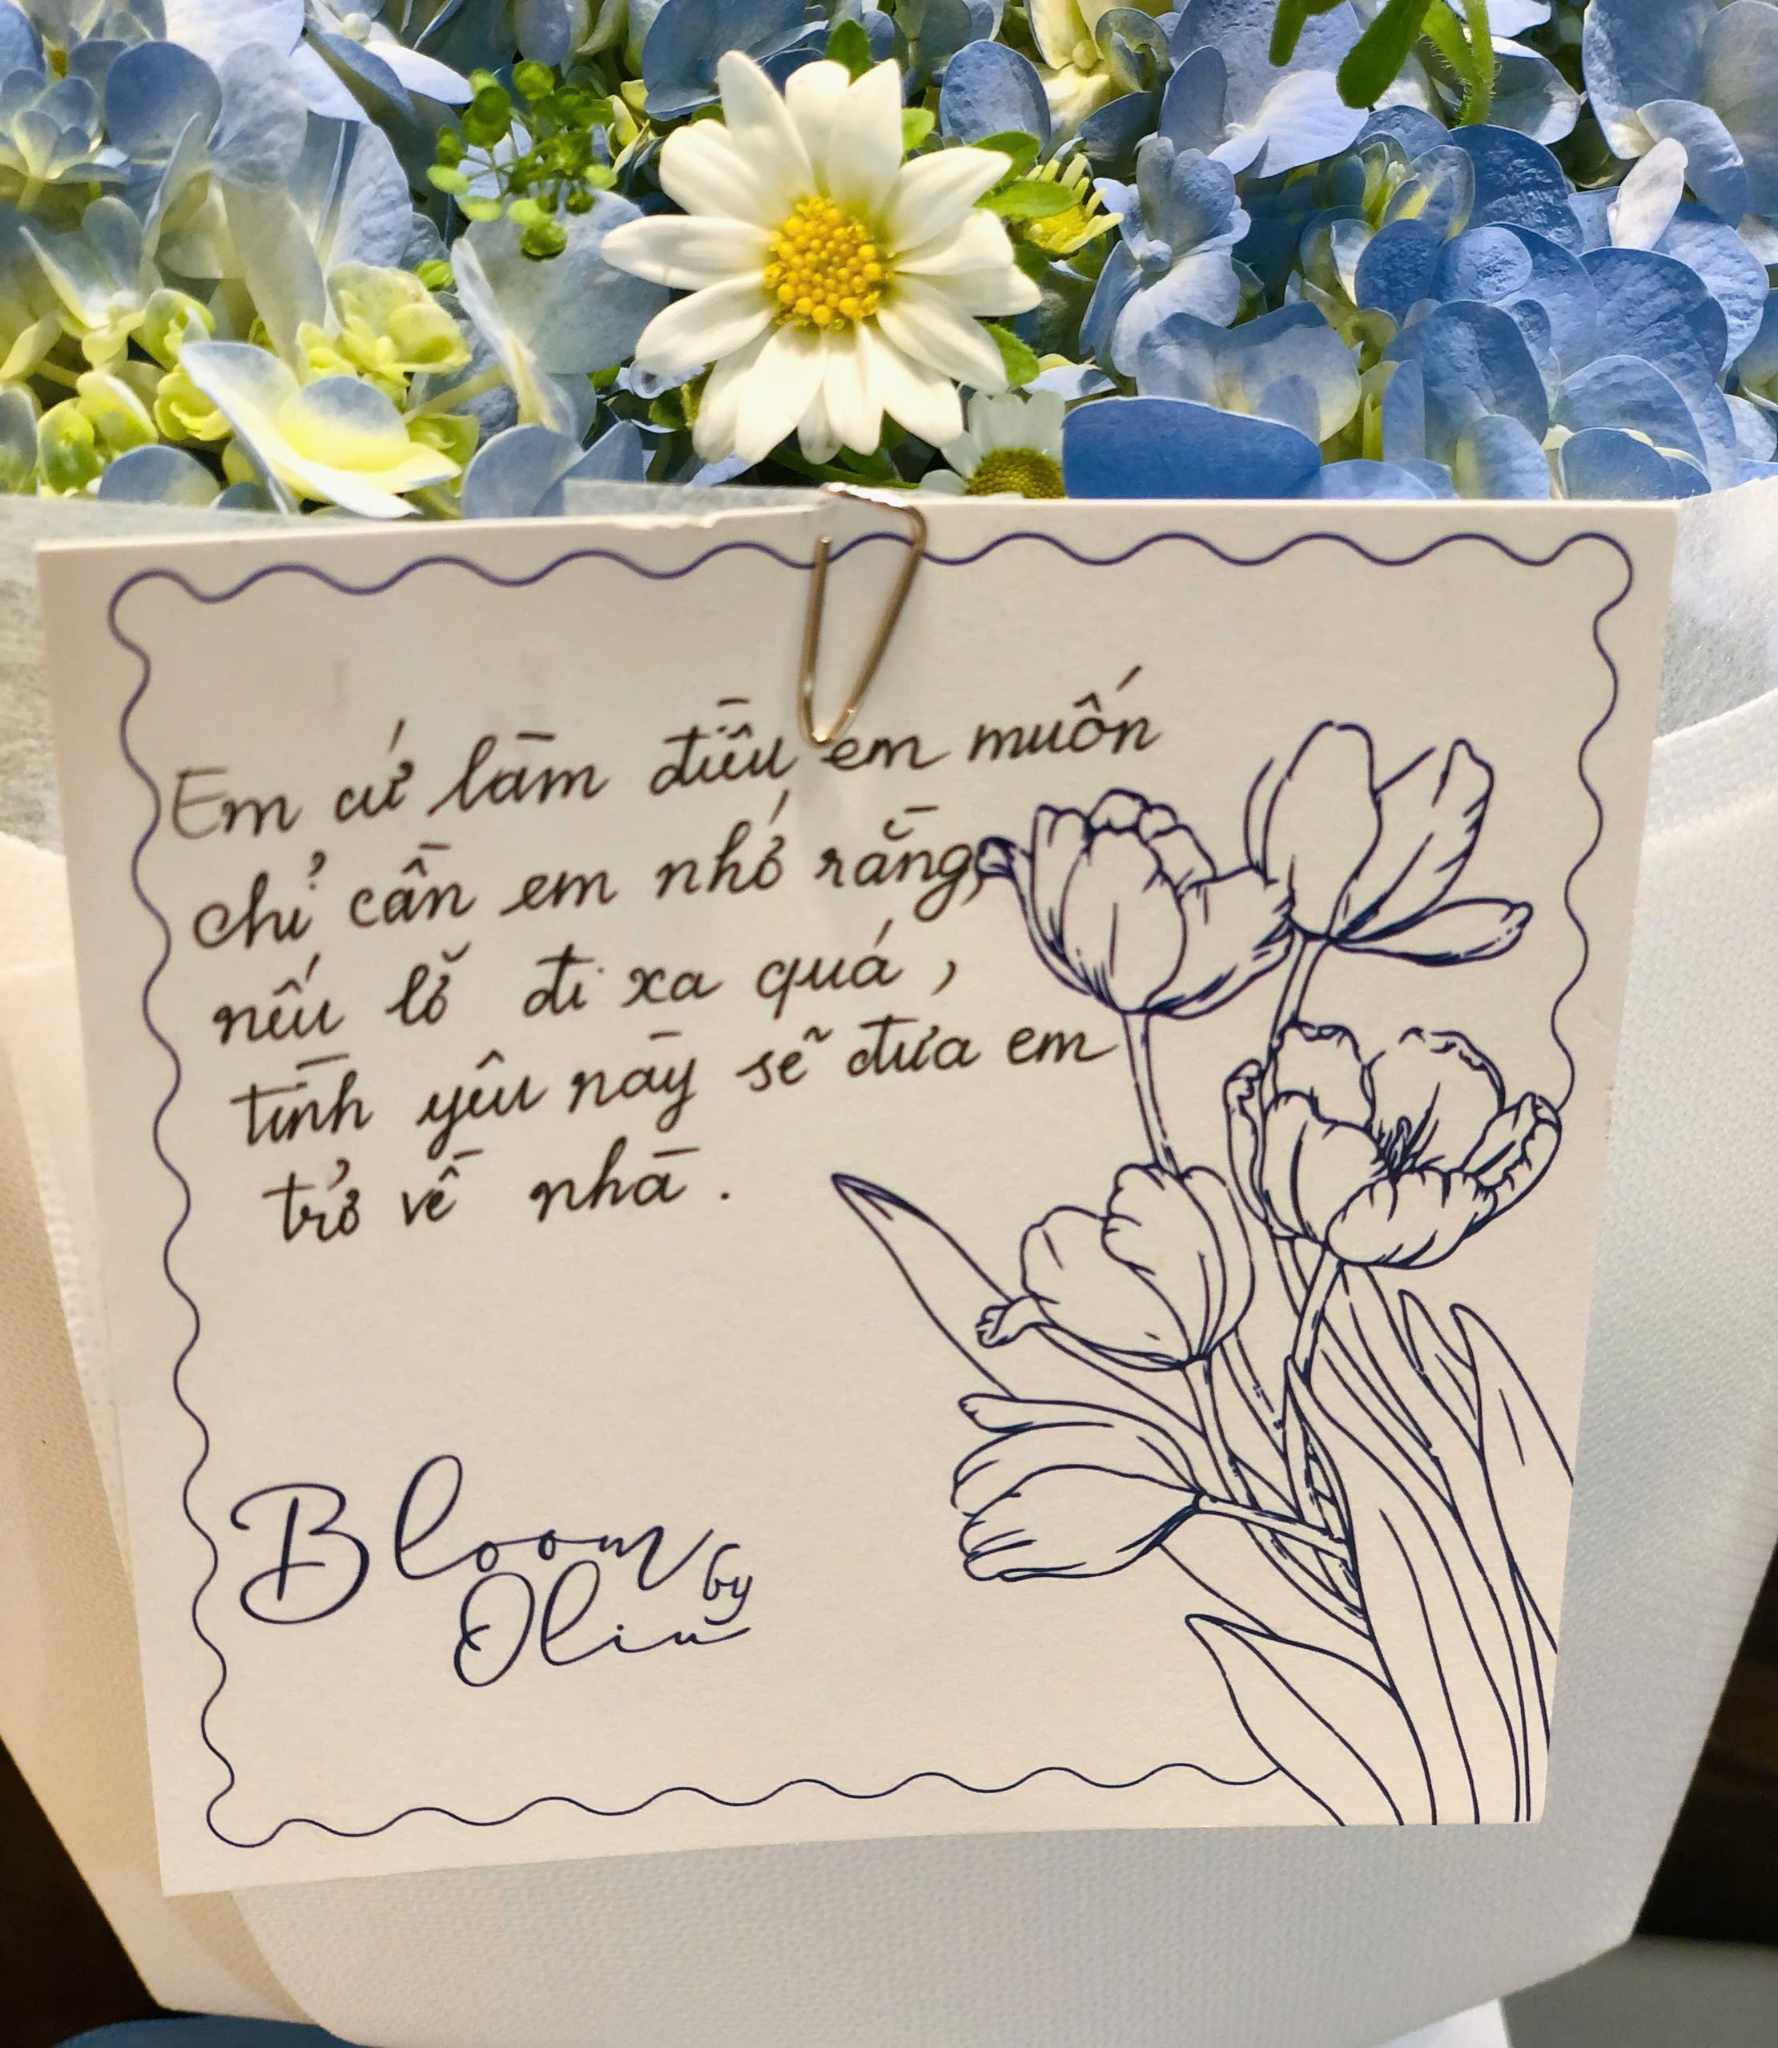 Em cứ làm điều em muốn
chỉ cần em nhớ rằng,
nếu lỡ đi xa quá,
tình yêu này sẽ đưa em
trở về nhà.
Bloom by
Oliu